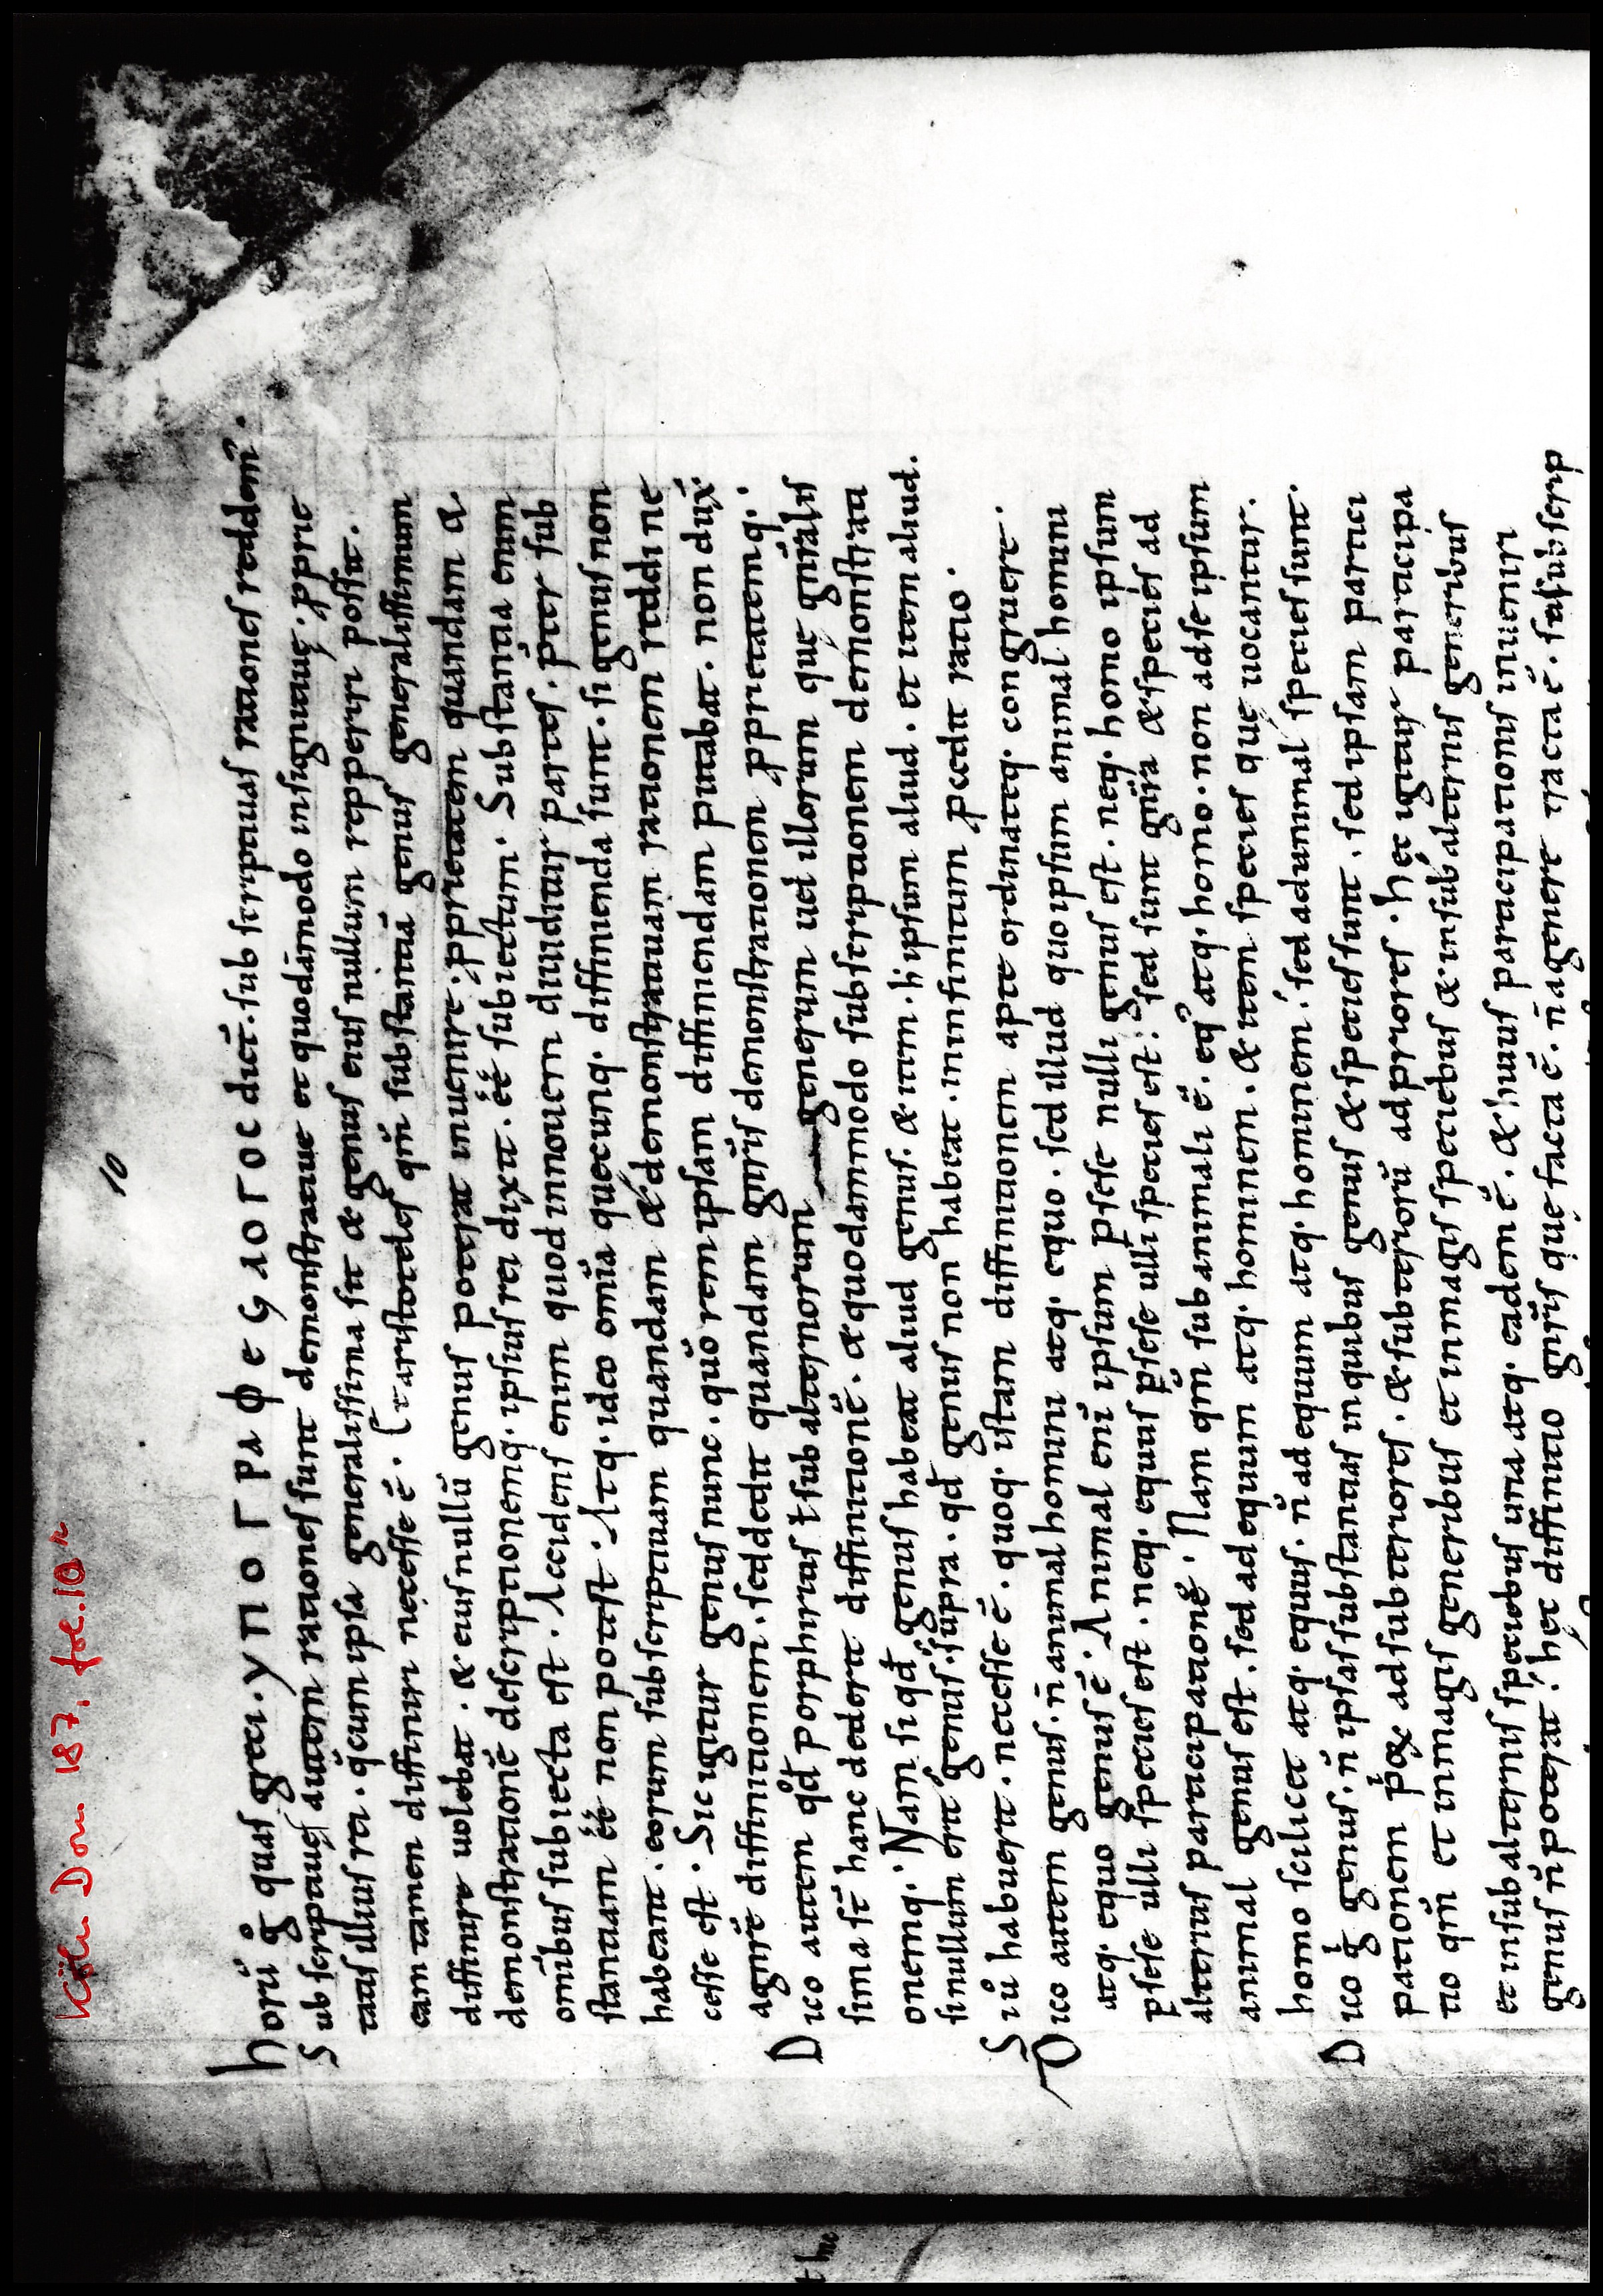 Köln Dom 187. fol. 10r
10
horū g̊ quas greci. ΥΠΟΓΡΑΦΕϚ ΛΟΓΟϹ dict̄. sub scriptiuas rationes reddem̄.
Subscriptiuę autem rationes sunt demonstratiue et quodāmodo insignitiuę. ꝓprie
tatis illius rei. q̄ cum ipsa generalissima sit & genus eius nullum repperiri possit.
eam tamen diffiniri necesse ē. (taristoteles qm̄ substantiā genus generalissimum
diffinire uolebat. & eius nullū genus poterat inuenire. ꝓprietatem quandam &
demonstrationē descriptionemq. ipsius rei dixit. eē subiectum. Substantia enim
omībus subiecta est. Accidens enim quod in nouem diuiditur partes. p̄ter sub
stantiam eē non potest. Atq. ideo omīa quęcunq. diffinienda sunt. si genus non
habeant. eorum subscriptiuam quandam & demonstratiuam rationem reddi ne
cesse est. Sic igitur genus nunc. quō rem ipsam diffiniendam putabat. non dux̄
a gn̄re diffinitionem. sed dedit quandam gn̄ris demonstrationem ꝓprietatemq.
Dico autem qd̄ porphirius ł subalternorum generum uel illorum quę gn̄ralis
sima st̄ hanc dederit diffinitionē. & quodammodo subscriptionem demonstrati
onemq. Nam si qd̄ genus habeat aliud genus. & item h' ipsum aliud. et item aliud.
si nullum erit genus. supra. qd̄ genus non habeat. in infinitum ꝓcedit ratio.
Siū habuerit. necesse ē. quoq. istam diffinitionem apte ordinateq. congruere.
Dico autem genus. n̄ animal homini atq. equo. sed illud quo ipsum animal homini
atq. equo genus ē. Animal enī ipsum p sese nulli genus est. neq. homo ipsum
p sese ulli species est. neq. equus p sese ulli species est. sed sunt gn̄ra & species ad
alterius participationē. Nam qm̄ sub animali ē. eq̊ atq. homo. non ad se ipsum
animal genus est. sed ad equum atq. hominem. & item species quę uocantur.
homo scilicet atq. equus. n̄ ad equum atq. hominem. sed ad animal species sunt.
Dico g̊ genus. n̄ ipsas substantias in quibus genus & species sunt. sed ipsam partici
pationem ad subteriores. & subteriorū ad priores. hęc igitur participa
tio qm̄ et in magis generibus et in magis speciebus & in subalternis generibus
et in subalternis speciebus una atq. eadem ē. & huius participationis inueniri
genus n̄ poterat. hęc diffinitio gn̄ris quę facta ē. n̄ a genere tracta ē. sed subscrip